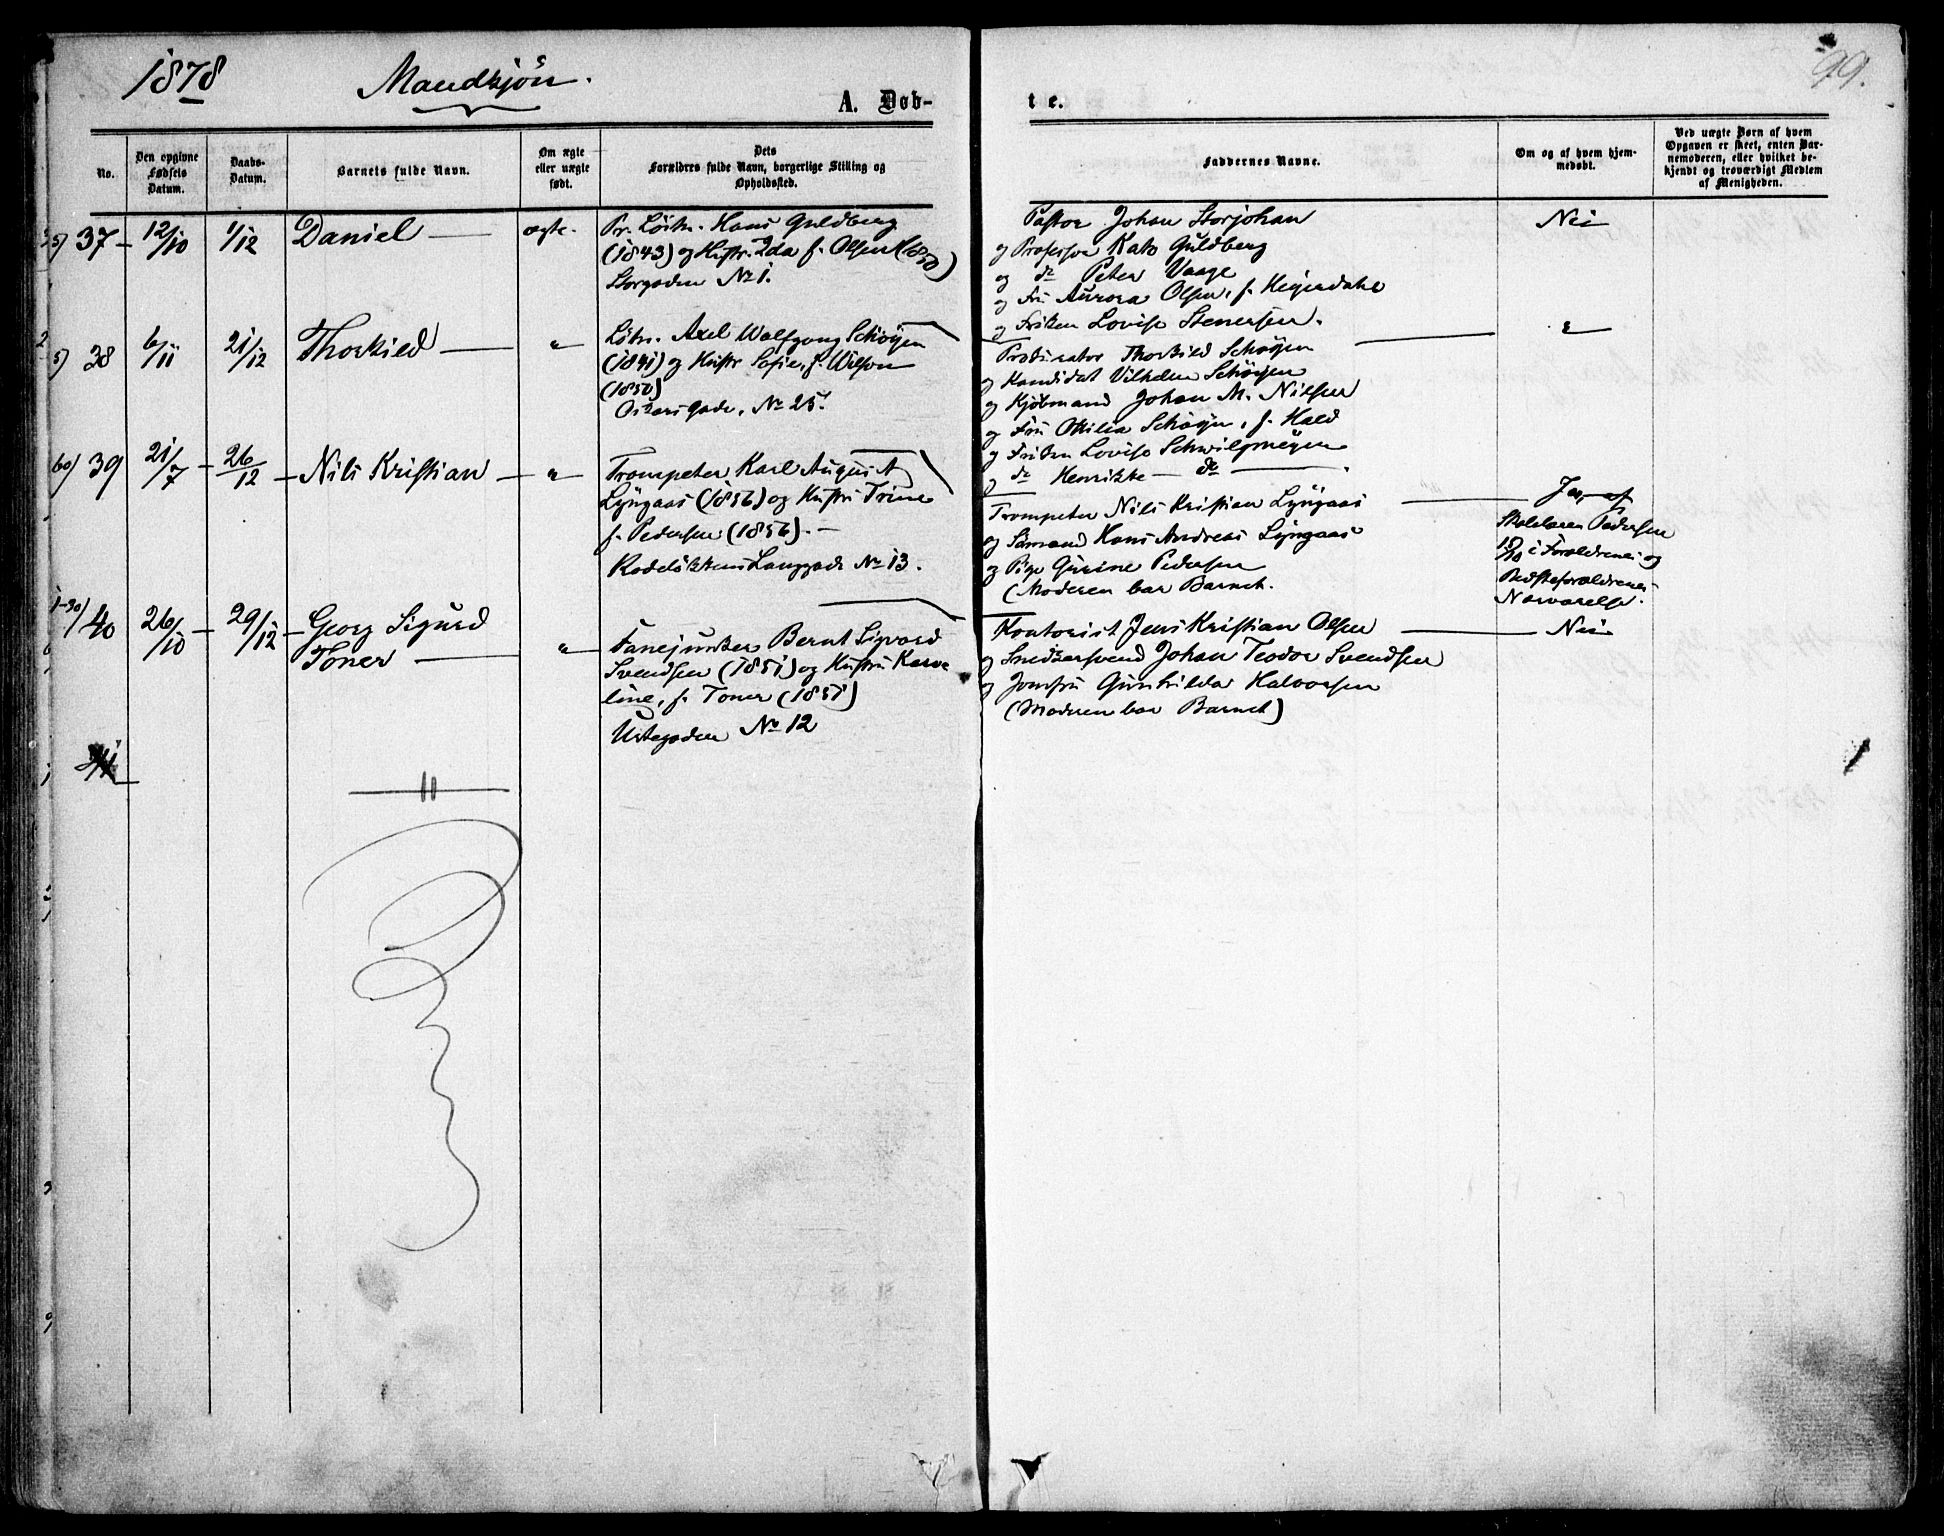 1878 Mandkjön.
99.
A. Døb-
t e.
No.
Den opgivne Fødsels Datum.
Daabs-Datum.
Barnets fulde Navn.
Om ægte eller uægte født.
Dets Forældres fulde Navn, borgerlige Stilling og Opholdssted.
Faddernes Navne.
Om og af hvem hjemmedøbt.
Ved uægte Børn af hvem Opgaven er skeet, enten Barnemoderen, eller hvilket bekjendt og troværdigt Medlem af Menigheden.
5) 37 12/10 1/12 Daniel ægte.
Pr. Løitn. Hans Guldberg
(1843) og Hustr. Ida f. Olsen (1850)
Storgaden No 1.
Pastor Johan Storjohan
og Professor Kato Guldberg
og do Peter Vaage
og Fru Aurora Olsen, f. Heyerdahl
og Frøken Lovise Stenersen.
Nei
5) 38 6/11 21/12 Thorkild "
Løtn. Axel Wolfgang Schøyen
(1841) og Hustr Sofie, f. Wilson
(1850)
Oscarsgade, No 25.
Prokurator Thorkild Schøyen
og Kandidat Vilhelm Schøyen
og Kjöbmand Johan M. Nilsen
og Fru Otilia Schøyen, f. Hald
og Frøken Lovise Schwilpmeyen
og do Henrikke — do —
"
60) 39 21/7 26/12 Nils Kristian "
Trompeter Karl August
Lyngaas (1856) og Hustru Trine
f. Pedersen (1856). —
Rodeløkkens Langgade No 13.
Trompeter Nils Kristian Lyngaas
og Sömand Hans Andreas Lyngaas
og Pige Gurine Pedersen
(Moderen bar Barnet.
Ja, af
Skolelærer Pedersen
i Forældrenes og
Bedsteforældrenes
Nærværelse.
40 26/10 29/12 Georg Sigurd
Toner "
Fanejunker Bernt Sigvard
Svendsen (1851) og Hustru Karo-
line, f. Toner (1851)
Urtegaden No 12
Kontorist Jens Kristian Olsen
og Snedkersvend Johan Teodor Svendsen
og Jomfru Gunhilda Halvorsen
(Moderen bar Barnet)
Nei
41